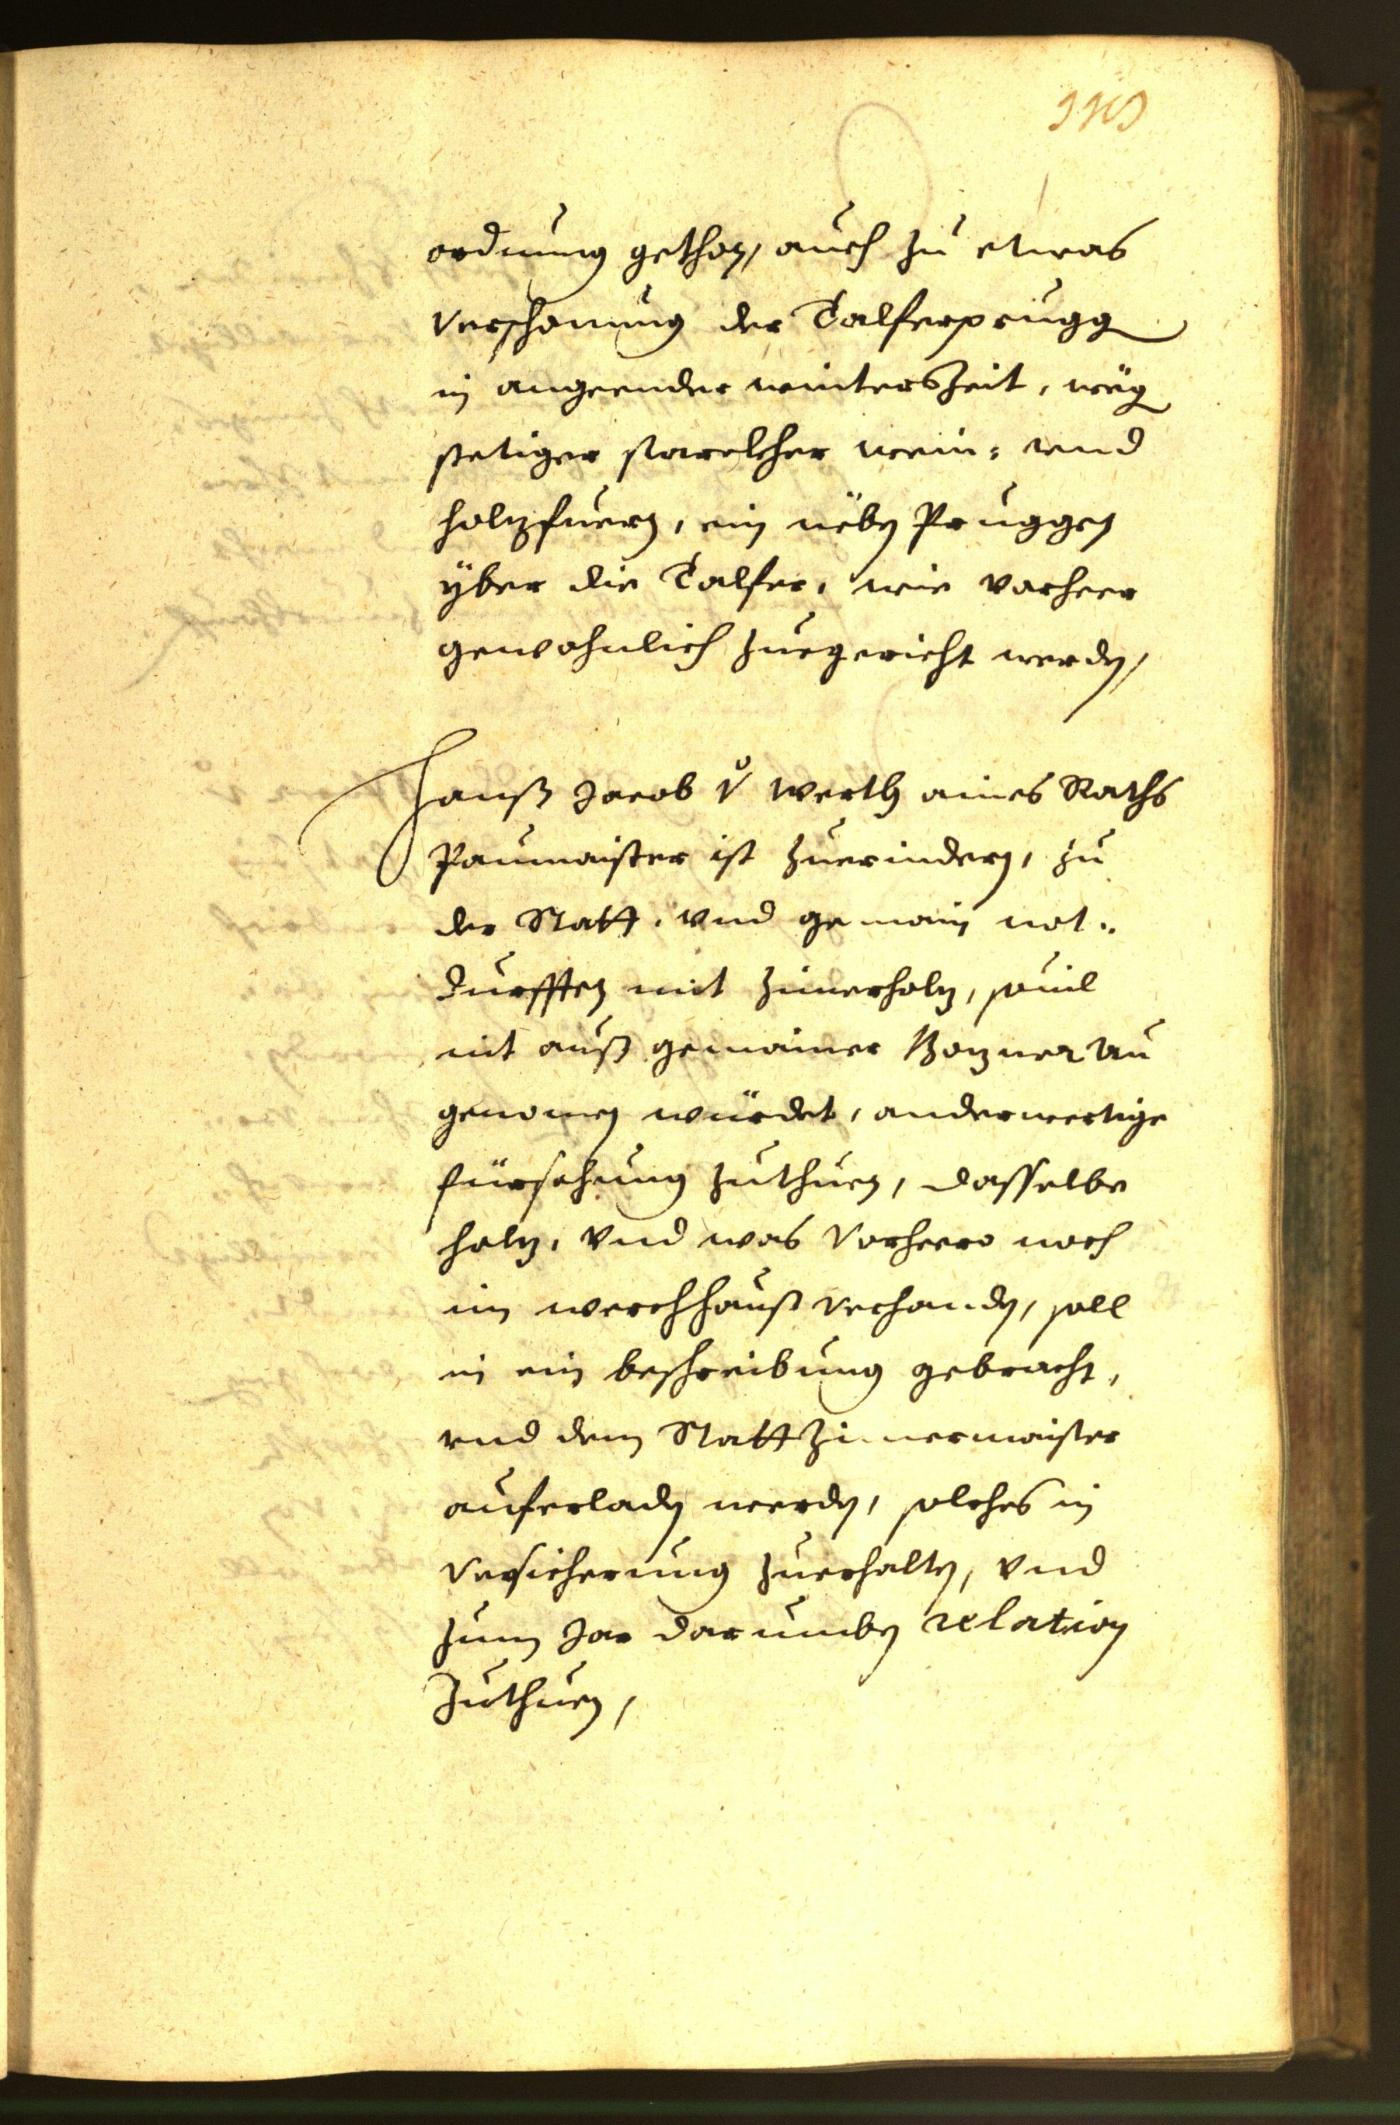 ordnung gethon, auch zu etwas
verschonung der Talferprugg
in angeender winterszeit, weg
stetiger starckher wein- und
holzfuern, ein neben Pruggen
yber die Talfer, wie vorheer
gewohnlich zuegericht werden,
Hanß Jacob v werth aines Raths
Paumaister ist zuerindern, zu
der Statt, und gemain not-
durfften mit zimerholz, souil
nit auß gemainer Bozner Au
genomen würdet, anderwertige
fürsehung zuthuen, dasselbe
holz, und was vorheero noch
im werchhauß verhanden, soll
in ein beschreibung gebracht,
und dem Statt Zimermaister
auferladen werden, solches in
versicherung zuerhalten, und
zum Jar darumben relation
zuthuen,